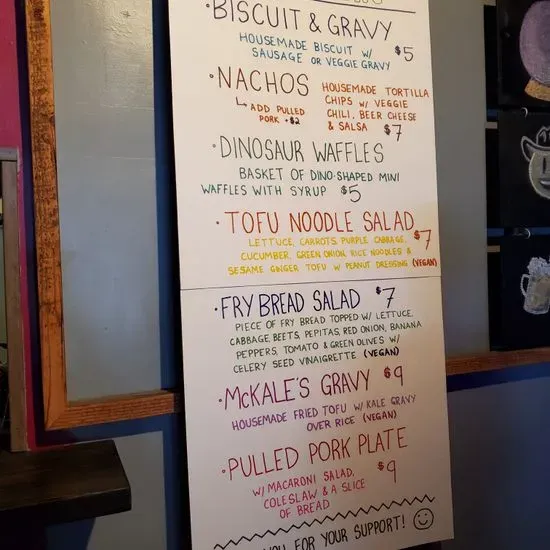 ·BISCUIT & GRAVY
HOUSEMADE BISCUIT W/ $5
SAUSAGE OR VEGGIE GRAVY
·NACHOS HOUSEMADE TORTILLA
CHIPS W/ VEGGIE
CHILI, BEER CHEESE
& SALSA $7
↳ ADD PULLED
PORK +$2
·DINOSAUR WAFFLES
BASKET OF DINO-SHAPED MINI
WAFFLES WITH SYRUP $5
·TOFU NOODLE SALAD $7
LETTUCE, CARROTS, PURPLE CABBAGE,
CUCUMBER, GREEN ONION, RICE NOODLES &
SESAME GINGER TOFU W PEANUT DRESSING (VEGAN)
·FRY BREAD SALAD $7
PIECE OF FRY BREAD TOPPED W/ LETTUCE,
CABBAGE, BEETS, PEPITAS, RED ONION, BANANA
PEPPERS, TOMATO & GREEN OLIVES W/
CELERY SEED VINAIGRETTE (VEGAN)
·McKALE'S GRAVY $9
HOUSEMADE FRIED TOFU W/ KALE GRAVY
OVER RICE (VEGAN)
·PULLED PORK PLATE $9
W/ MACARONI SALAD,
COLESLAW & A SLICE
OF BREAD
YOU FOR YOUR SUPPORT!